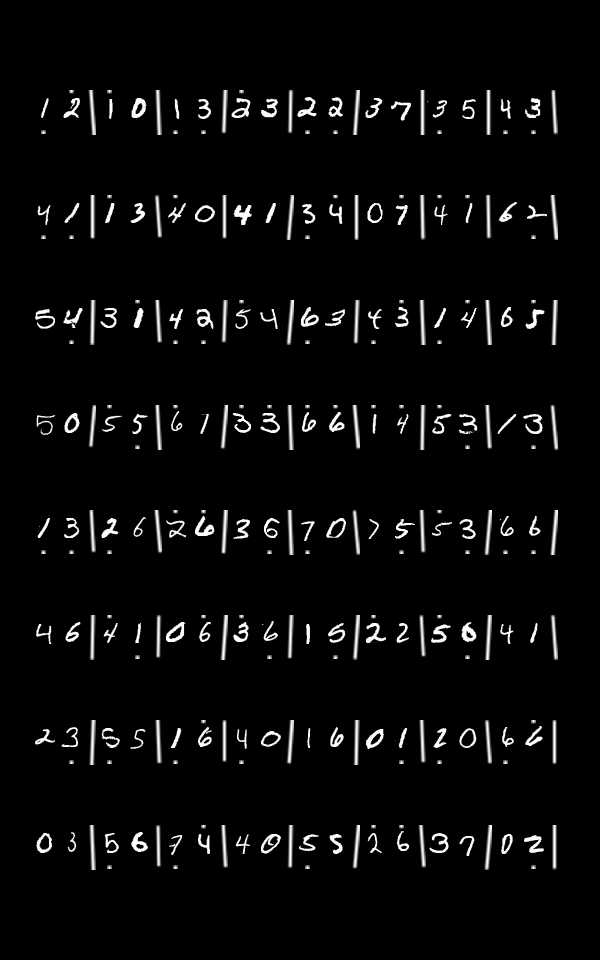 1̣ 2̇ | 1̇ 0 | 1̣ 3̣ | 2̇ 3 | 2̣ 2̣ | 3 7 | 3̣ 5 | 4̣ 3̣ |
4̣ 1̣ | 1̇ 3 | 4̇ 0 | 4 1 | 3̣ 4̇ | 0 7̇ | 4̇ 1̇ | 6 2̣ |
5 4̣ | 3 1̇ | 4̣ 2̣ | 5̇ 4 | 6̣ 3 | 4̣ 3̇ | 1̣ 4̇ | 6 5̇ |
5 0 | 5̇ 5̣ | 6̇ 1 | 3̇ 3 | 6̇ 6̇ | 1̇ 4̇ | 5 3̣ | 1 3 |
1̣ 3̣ | 2̣ 6 | 2̇ 6̇ | 3 6̣ | 7̣ 0 | 7 5̣ | 5̇ 3 | 6̣ 6̣ |
4 6 | 4̇ 1̣ | 0 6̇ | 3̇ 6̣ | 1 5̣ | 2̇ 2 | 5̇ 6̣ | 4 1 |
2 3̣ | 5̇ 5 | 1̣ 6̇ | 4̣ 0 | 1 6 | 0 1̣ | 2̣ 0 | 6̣ 6̇ |
0 3 | 5̣ 6 | 7̣ 4̇ | 4 0 | 5̣ 5 | 2̇ 6̇ | 3 7 | 0 2̣ |